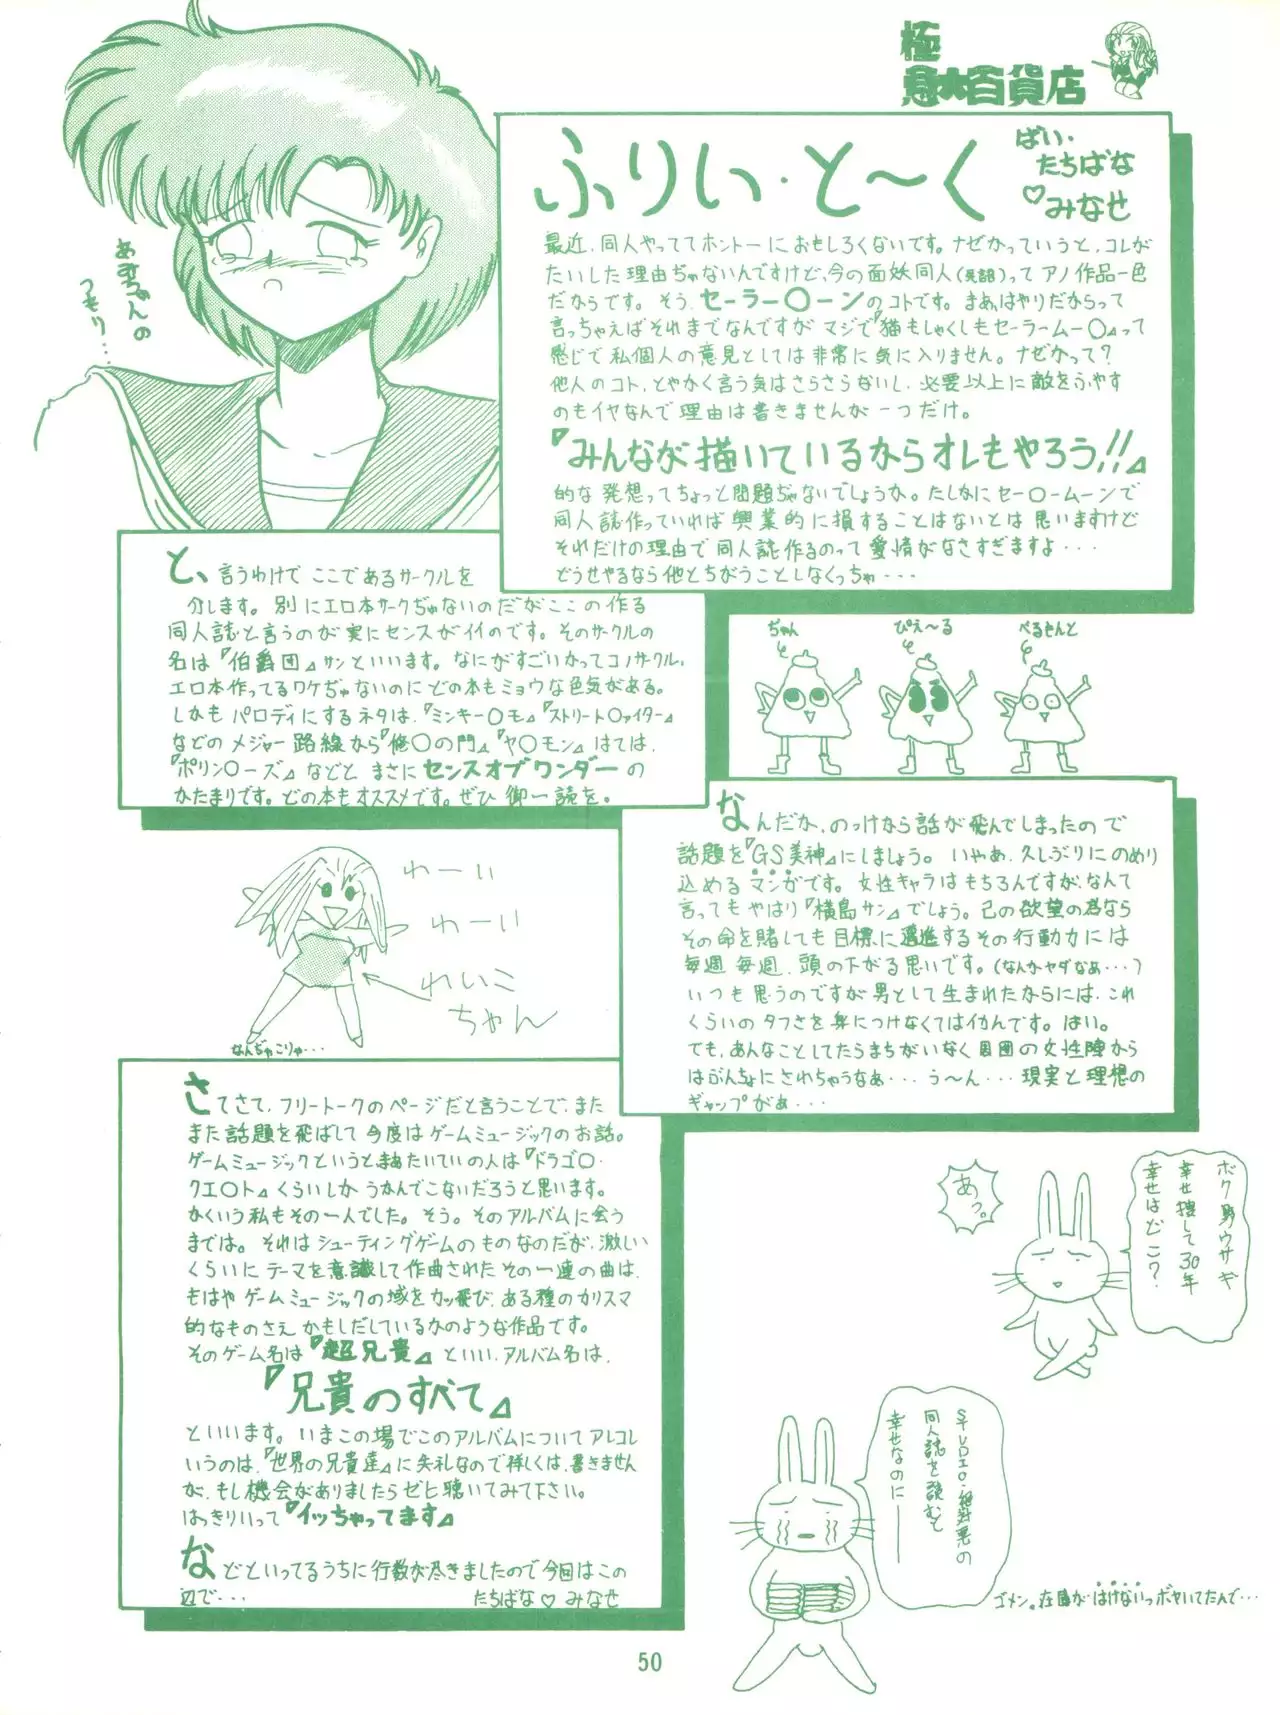 極
百貨店
ふりい・と〜く
ばい・
たちばな
♡みなせ
あみちゃんの
つもり…
最近、同人やっててホントーにおもしろくないです。ナゼかっていうと、コレが
たいした理由ぢゃないんですけど、今の面妖同人(死語)って アノ作品一色
だからです。そう、セーラー〇ーンのコトです。まぁ、はやりだからって
言っちゃえばそれまでなんですが マジで『猫もしゃくしもセーラームー〇』って
感じで私個人の意見としては非常に気に入りません。ナゼかって?
他人のコト、とやかく言う気はさらさらないし、必要以上に敵をふやす
のもイヤなんで理由は書きませんが 一つだけ。
『みんなが描いているからオレもやろう!!』
的な 発想ってちょっと問題ぢゃないでしょうか。たしかにセー〇ームーンで
同人誌作っていれば興業的に損することはないとは思いますけど
それだけの理由で同人誌作るのって愛情がなさすぎますよ・・・
どうせやるなら他とちがうことしなくっちゃ・・・
と、言うわけで ここであるサークルを
介します。別にエロ本サークぢゃないのだがここの作る
同人誌と言うのが実にセンスがイイのです。そのサークルの
名は『伯爵団』サンといいます。なにがすごいかってコノサークル、
エロ本作ってるワケぢゃないのにどの本もミョウな色気がある。
しかもパロディにするネタは、『ミンキー〇モ』『ストリート〇ァイター』
などのメジャー路線から『修〇の門』『ヤ〇モン』はては、
『ポリン〇ーズ』などと まさにセンスオブワンダーの
かたまりです。どの本もオススメです。ぜひ御一読を。
ぢゃん
ぴえ〜る
べるさんと
なんだか、のっけから話が飛んでしまったので
話題を『GS美神』にしましょう。いやぁ、久しぶりにのめり
込めるマンガです。女性キャラはもちろんですが、なんて
言ってもやはり『横島サン』でしょう。己の欲望の為なら
その命を賭しても目標に邁進するその行動力には
毎週毎週、頭の下がる思いです。(なんかヤダなぁ・・・)
いつも思うのですが男として生まれたからには、これ
くらいのタフさを身につけなくてはイカんです。はい。
でも、あんなことしてたらまちがいなく周囲の女性陣から
はぶんちょにされちゃうなぁ・・・う〜ん・・・現実と理想の
ギャップがぁ・・・
わーい
わーい
れいこ
ちゃん
なんぢゃこりゃ・・・
さてさて、フリートークのページだと言うことで、また
また話題を飛ばして今度はゲームミュージックのお話。
ゲームミュージックというとまぁたいていの人は『ドラゴ〇・
クエ〇ト』くらいしかうかんでこないだろうと思います。
かくいう私もその一人でした。そう。そのアルバムに会う
までは。それはシューティングゲームのものなのだが、激しい
くらいにテーマを意識して作曲されたその一連の曲は、
もはやゲームミュージックの域をカッ飛び、ある種のカリスマ
的なものさえかもしだしているかのような作品です。
そのゲーム名は『超兄貴』といい、アルバム名は、
『兄貴のすべて』
といいます。いまこの場でこのアルバムについてアレコレ
いうのは、『世界の兄貴達』に失礼なので詳しくは、書きません
が、もし機会がありましたらゼヒ聴いてみて下さい。
はっきりいって『イッちゃってます』
などといってるうちに行数が尽きましたので今回はこの
辺で・・・ たちばな♡みなせ
あっ。
ボク男ウサギ
幸せ捜して30年
幸せはどこ?
STUDIO・絶対悪の
同人誌を読むと
幸せなのに——
ゴメン。在庫がはけないってボヤいてたんで・・・
50